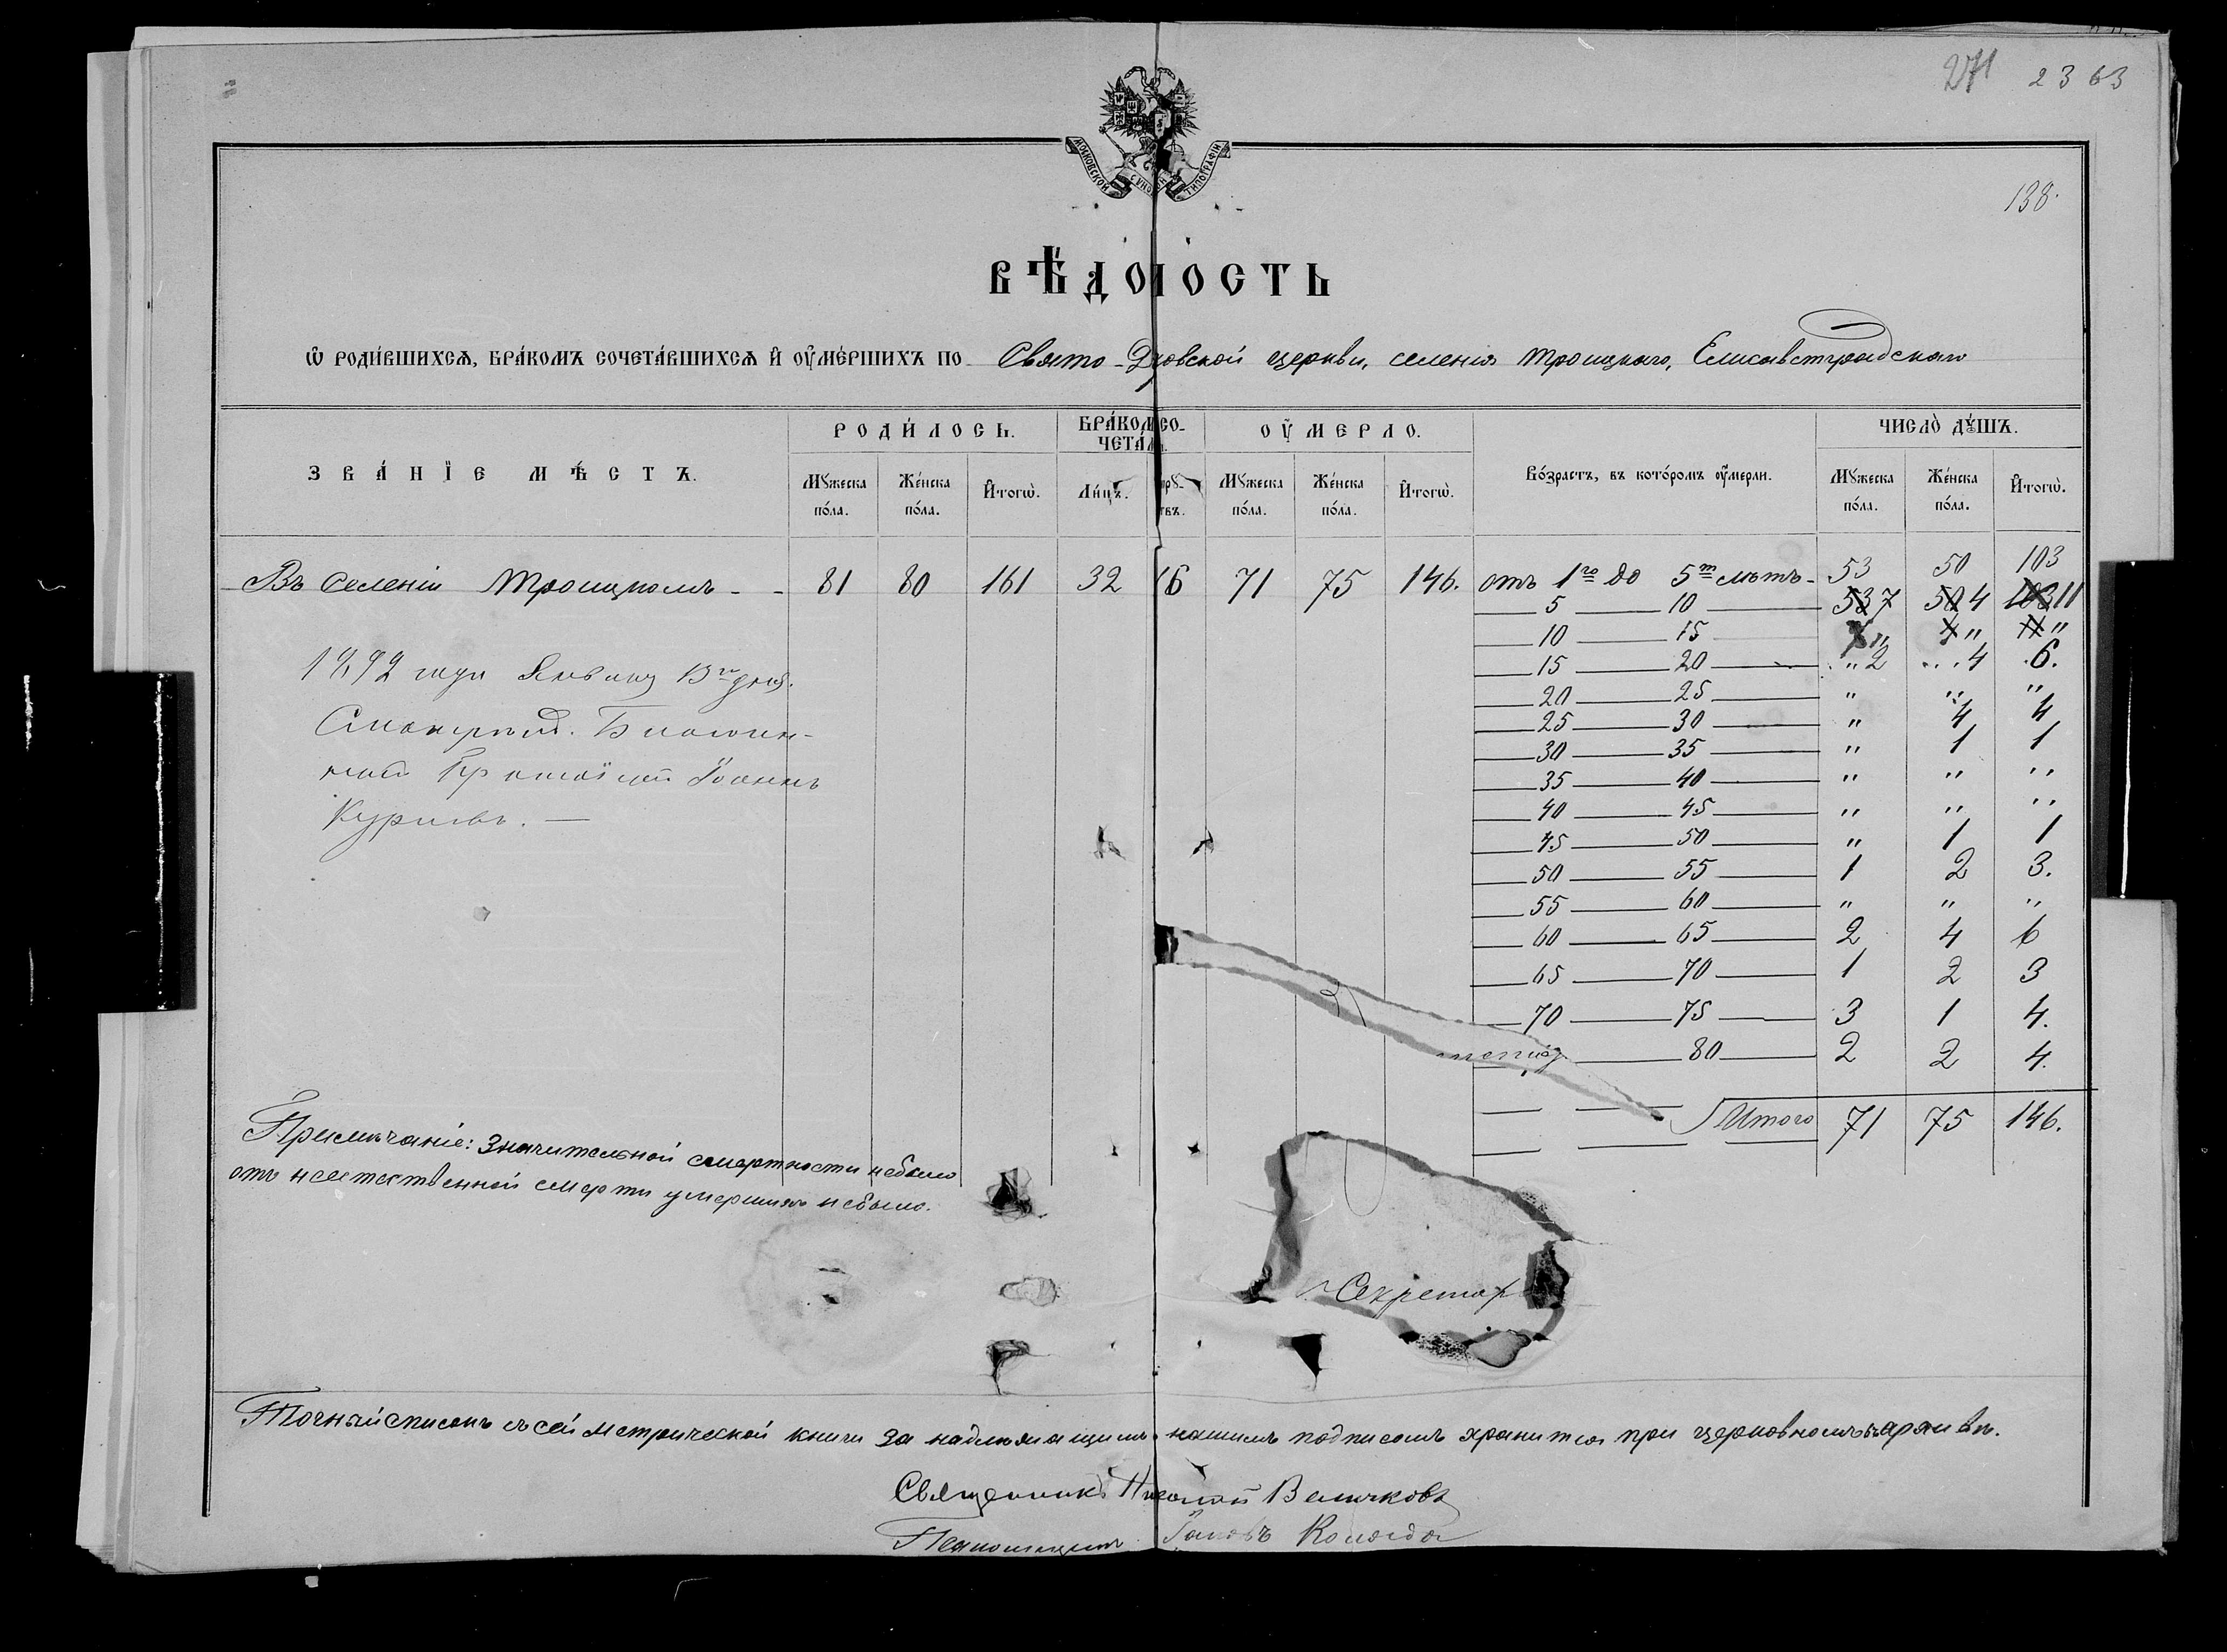 271 2363
МОСКОВСКОЙ СѴНОД ТИПОГРАФІИ
138.
ВѢДОМОСТЬ
Ѡ РОДИ́ВШИХСѦ, БРА́КОМЪ СОЧЕТА́ВШИХСѦ И҆ ОУ҆МЕ́РШИХЪ ПО Свято-Духовской церкви, селенія Троицкаго, Елисаветградскаго
ЗВА́НІЕ МѢ́СТЪ. РОДИ́ЛОСЬ. БРА́КОМ СО-ЧЕТА́Л. ОУ҆МЕРЛО. Во́зрастъ, въ кото́ромъ оу҆мерли. ЧИСЛО̀ ДꙊ́ШЪ.
Мꙋжеска по́ла. Же́нска по́ла. И҆тогѡ̀. Ли́цъ. прꙋ- твъ. Мꙋжеска по́ла. Же́нска по́ла. И҆тогѡ̀. Мꙋжеска по́ла. Же́нска по́ла. И҆тогѡ̀.
Въ селеніи Троицкомъ - - 81 80 161 32 16 71 75 146. отъ 1го до 5т лѣтъ - 53 50 103
5 10 53 7 50 4 103 11
10 15 7 " 4 " 11 "
15 20 " 2 " 4 6.
20 25 " " "
25 30 " 4 4
30 35 " 1 1
35 40 " " "
40 45 " " "
45 50 " 1 1
50 55 1 2 3.
55 60 " " "
60 65 2 4 6
65 70 1 2 3
70 75 3 1 4.
80 2 2 4.
Итого 71 75 146.
1892 года Января 13го дня.
Смотрѣлъ. Благочин-
ный Протоіерей Іоаннъ
Примѣчаніе: Значительной смертности небыло
отъ неестественной смерти умершихъ небыло.
Секретар
Точный списокъ съ сей метрической книги за надлежащимъ нашимъ подписомъ хранится при церковномъ архивѣ.
Священникъ Николай Величковъ
Псаломщикъ Іаковъ